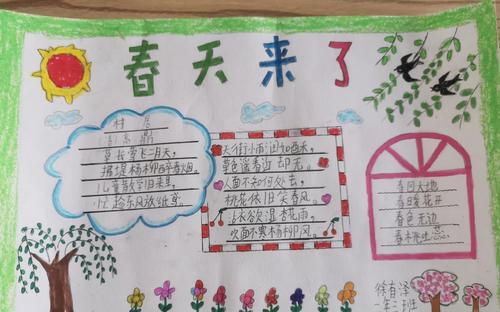 春天来了
村居
高鼎
草长莺飞二月天，
拂堤杨柳醉春烟。
儿童散学归来早，
忙趁东风放纸鸢。
天街小雨润如酥，
草色遥看近却无。
人面不知何处去，
桃花依旧笑春风。
沾衣欲湿杏花雨，
吹面不寒杨柳风。
春回大地
春暖花开
春色无边
徐有泽